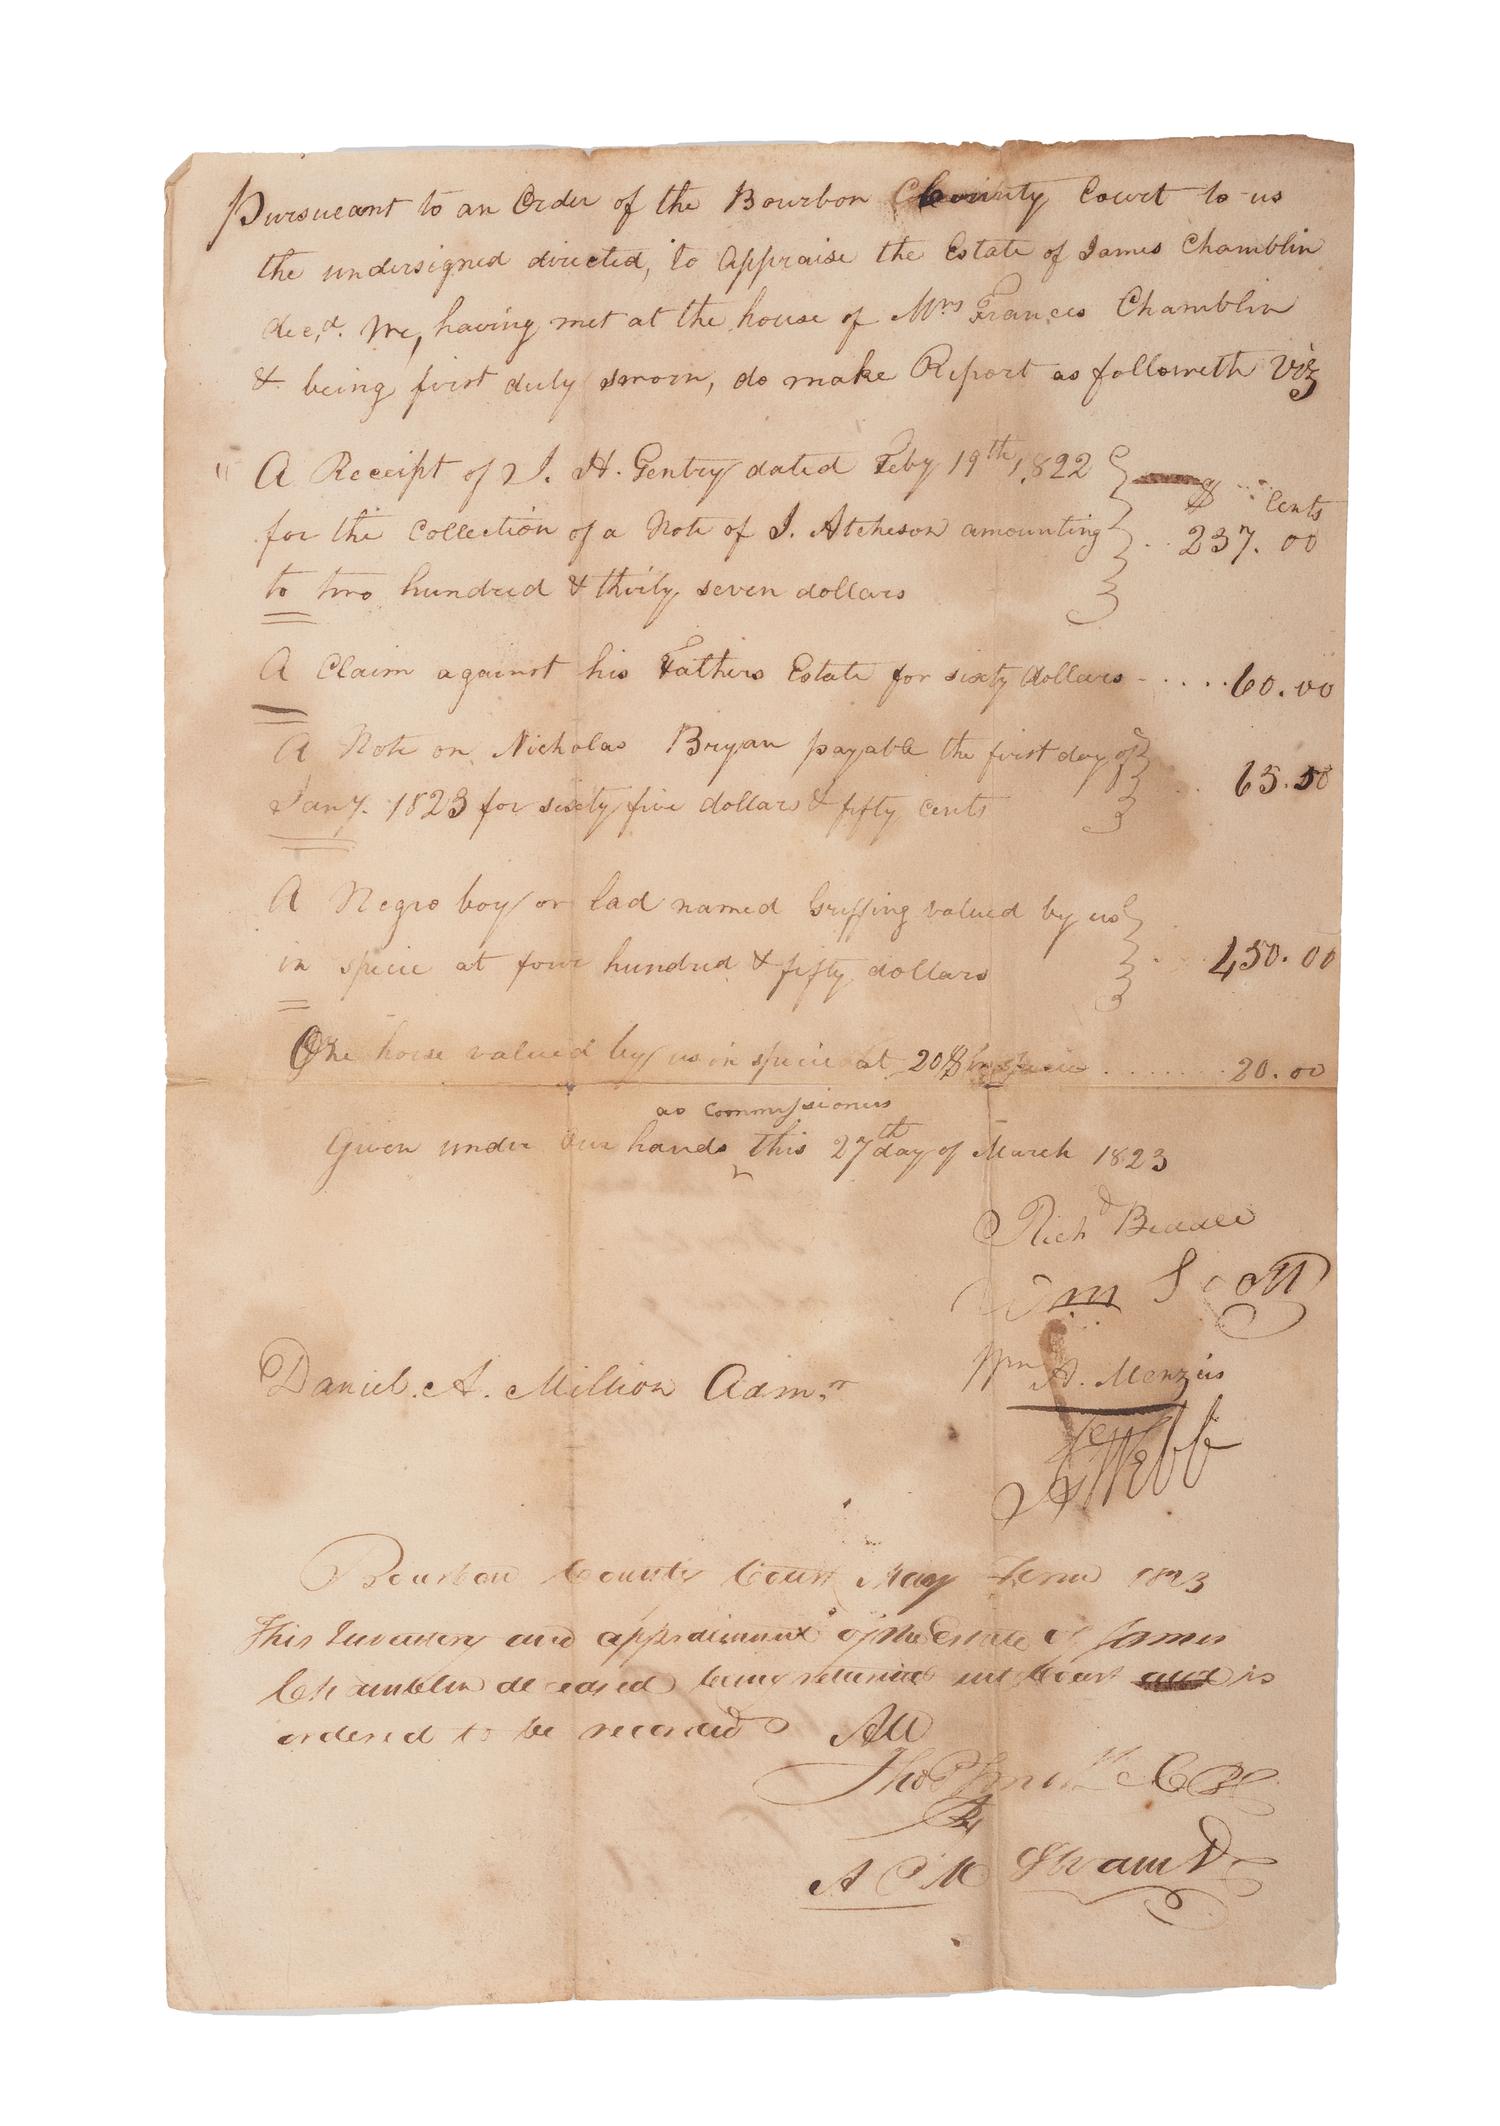 Pursueant to an Order of the Bourbon County Court to us
the undersigned directed, to appraise the Estate of James Chamblin
dec,d. We, having met at the house of Mrs Frances Chamblin
& being first duly sworn, do make Report as followeth Viz
" A Receipt of J. H. Gentry dated Feby 19th 1822
$ Cents
for the Collection of a Note of J. Atcheson amounting .. 237. 00
to two hundred & thirty seven dollars
A Claim against his Fathers Estate for sixty dollars - .... 60.00
A Note on Nicholas Bryan payable the first day of
Jany. 1823 for sixety five dollars & fifty cents .. 65.50
A Negro boy or lad named Griffing valued by us
in specie at four hundred & fifty dollars .. 450.00
One horse valued by us in specie at 20$ in specie ....... 20.00
as Commissioners
Given under our hands this 27th day of March 1823
Richd
Wm Scott
Wm A. Menzies
Daniel. A. Million Adm,r
Webb
Bourbon County Court May Term 1823
This Inventory and appraisement of the Estate of James
Chamblin deceased being returned into Court and is
ordered to be recorded Att
Tho P Smith C B C
By
A C M D C